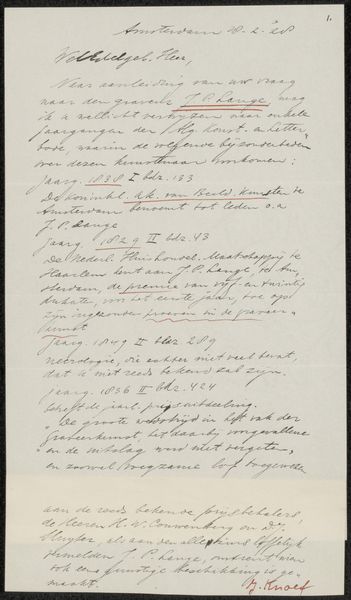 1.
Amsterdam 18.2.'28
WelEdelgeb. Heer,
Naar aanleiding van uw vraag
naar den graveur J. P. Lange mag
ik u wellicht verwijzen naar enkele
jaargangen der Alg. Konst- en Letter-
bode, waarin de volgende bijzonderheden
over dezen kunstenaar voorkomen:
Jaarg. 1838 I blz. 133
De Koninkl. Ak. van Beeld. Kunsten te
Amsterdam benoemt tot leden o.a
J. P. Lange
Jaarg. 1829 II blz. 43
De Nederl. Huishoud. Maatschappij te
Haarlem kent aan J. P. Lange, te Am-
sterdam, de premie van vijf-en-twintig
dukaten, voor het eerste jaar, toe op
zijn ingezonden proeven in de graveer-
kunst
Jaarg. 1849 II blz 289
necrologie, die echter niet veel bevat,
dat u niet reeds bekend zal zijn.
Jaarg. 1836 II blz. 424
betreft de jaarl. prijsuitdeeling.
"De groote wedstrijd in het vak der
Graveerkunst, het daarbij voorgevallene
en de uitslag word niet vergeten,
en zoowel toegezwaaid lof toegezwaaid
aan de reeds bekende prijsbehalers,
de heeren H. W. Couwenberg en D. J.
Sluyter, als aan den alleszins loffelijk
vermelden J. P. Lange, omtrent wien
ook eene gunstige beschikking is ge-
maakt.
J. Knoef